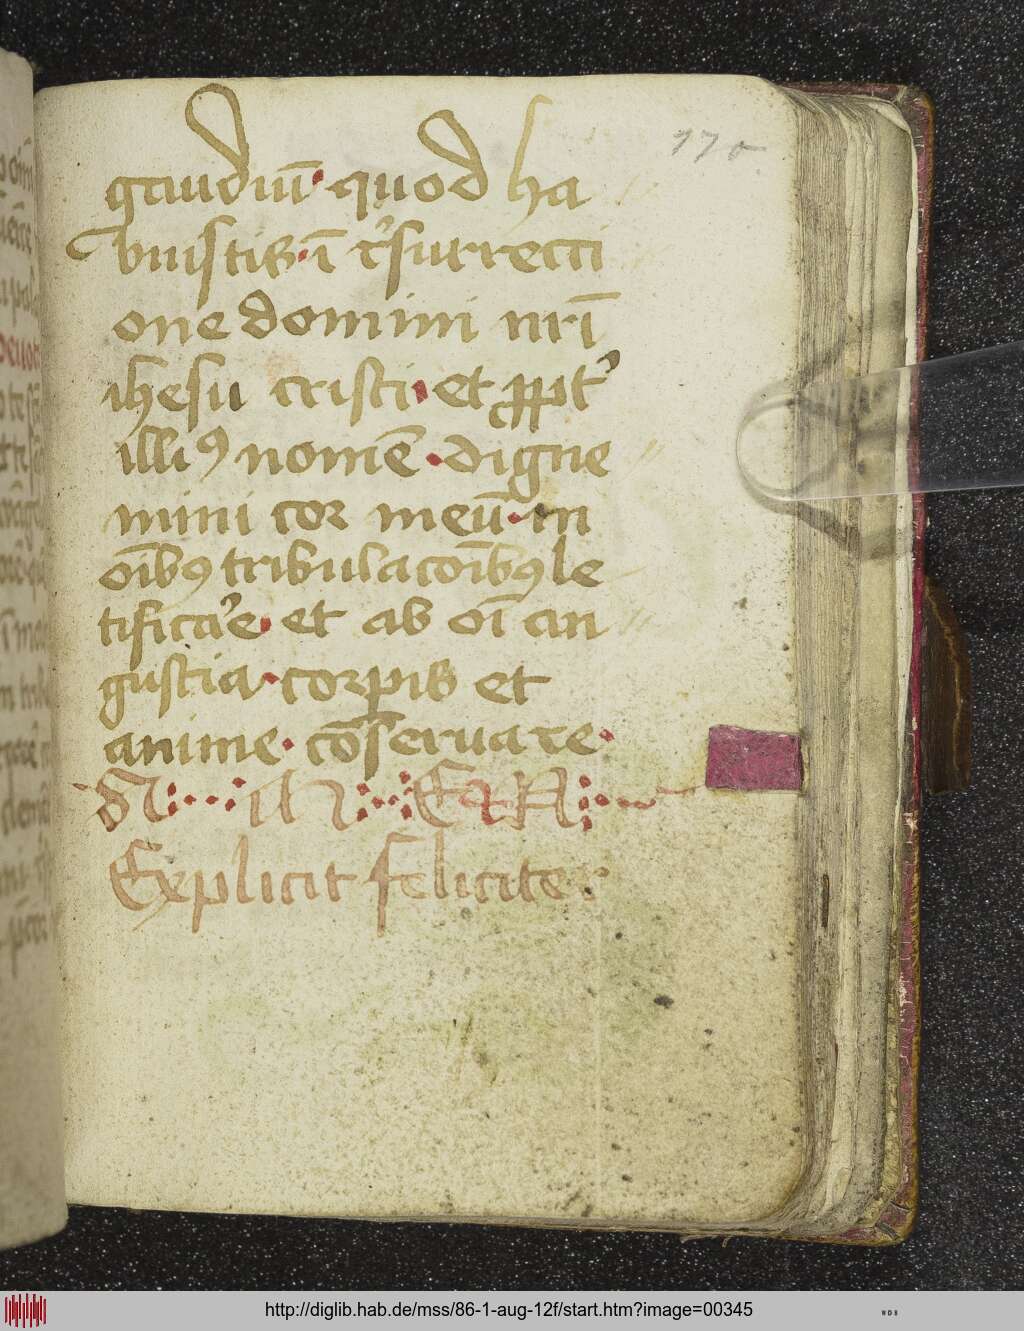 170
gaudiū quod ha
buistis ī r̓surrecti
one domini nr̄i
ihesu cristi et ꝓpt̓
illiꝰ nomē digne
mini cor meū in
oīb9 tribulacoīb9 le
tificar̓e et ab oī an
gustia corꝑis et
anime cōseruare
Explicit feliciter
http://diglib.hab.de/mss/86-1-aug-12f/start.htm?image=00345